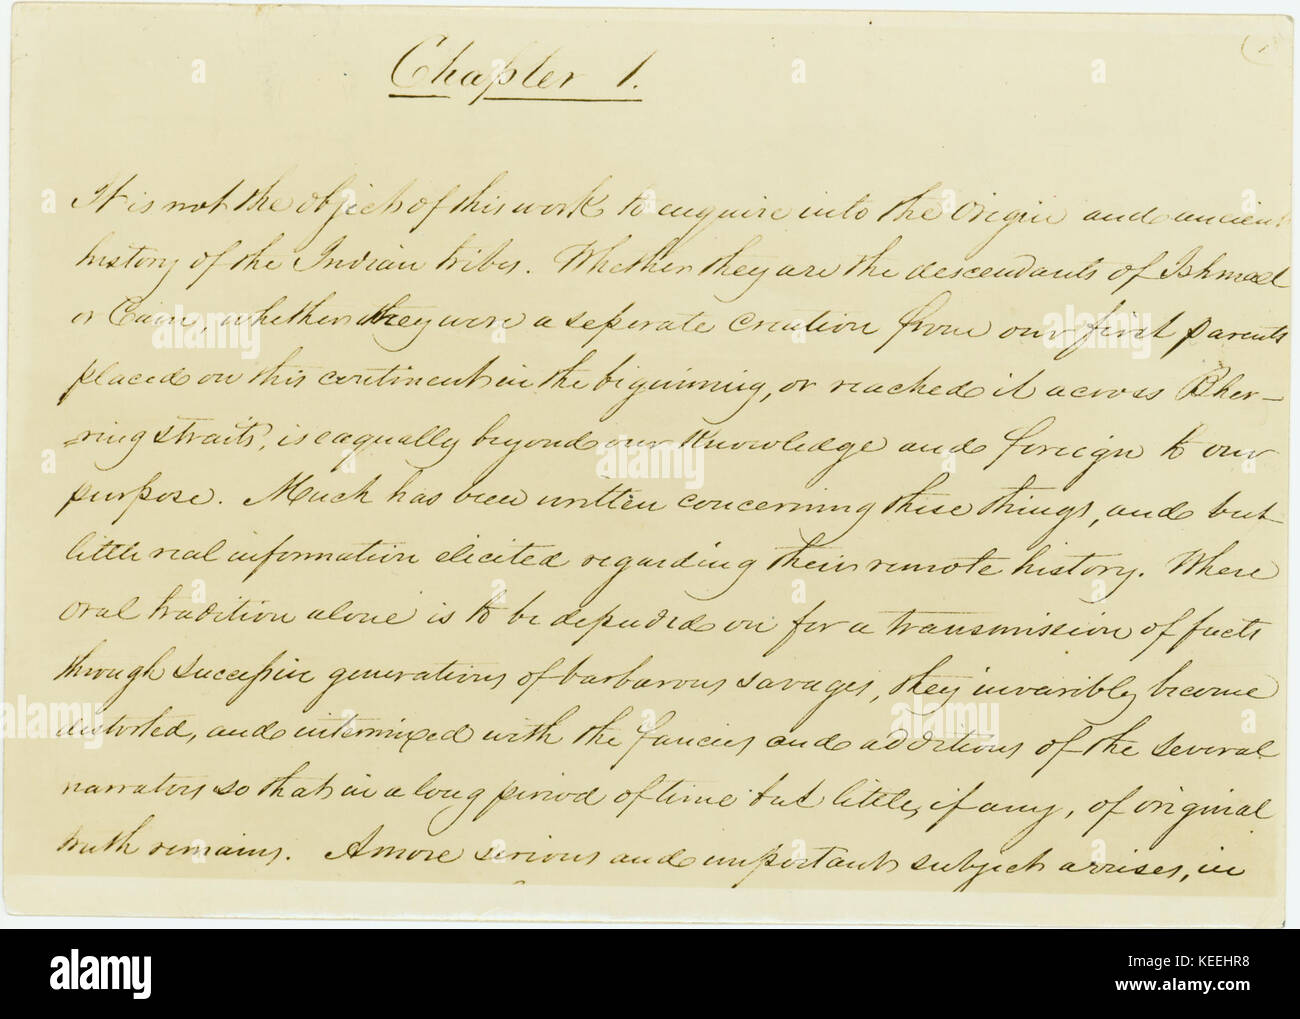 Chapter 1.
It is not the object of this work to enquire into the Origin and ancient
history of the Indian tribes. Whether they are the descendants of Ishmael
or Cain, whether they were a seperate creation from our first parents
placed on this continent in the biginning, or reached it across Bher-
ring straits, is eaqually beyond our Knowledge and foreign to our
purpose. Much has been written concerning these things, and but
little real information elicited regarding their remote history. Where
oral tradition alone is to be depended on for a transmission of facts
through successive generations of barbarous savages, they invaribly become
distorted, and intermixed with the fancies and additions of the several
narrators so that in a long period of time but little, if any, of original
truth remains. A more serious and important subject arrises, in
alamy
Image ID: KEEHR8
www.alamy.com